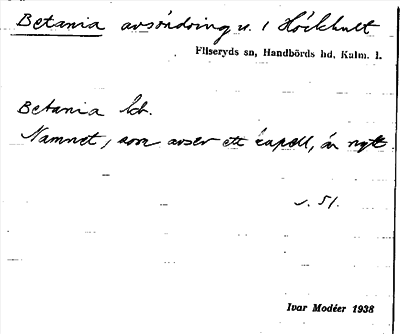 Betania avsöndring u. 1 Höckhult
Fliseryds sn, Handbörds hd, Kalm. l.
Betania kh.
Namnet, som avser ett capell, är nytt.
s. 51.
Ivar Modéer 1938